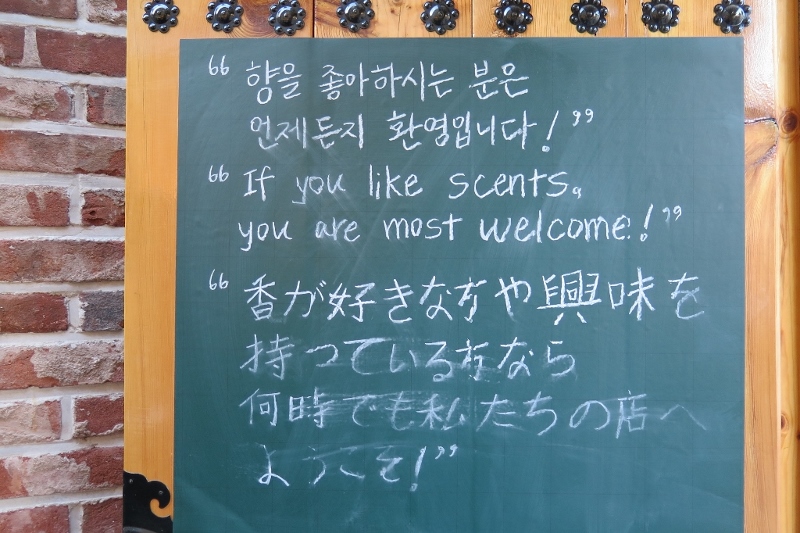 “향을 좋아하시는 분은
언제든지 환영입니다!”
“If you like scents。
you are most welcome!”
“香が好きな方や興味を
持っている方なら
何時でも私たちの店へ
ようこそ!”